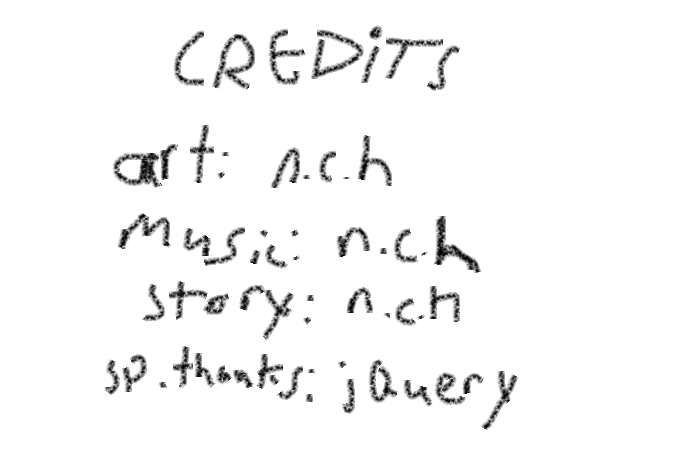 CREDiTS
art: n.c.h
Music: n.c.h
story: n.c.h
sp.thanks: jQuery